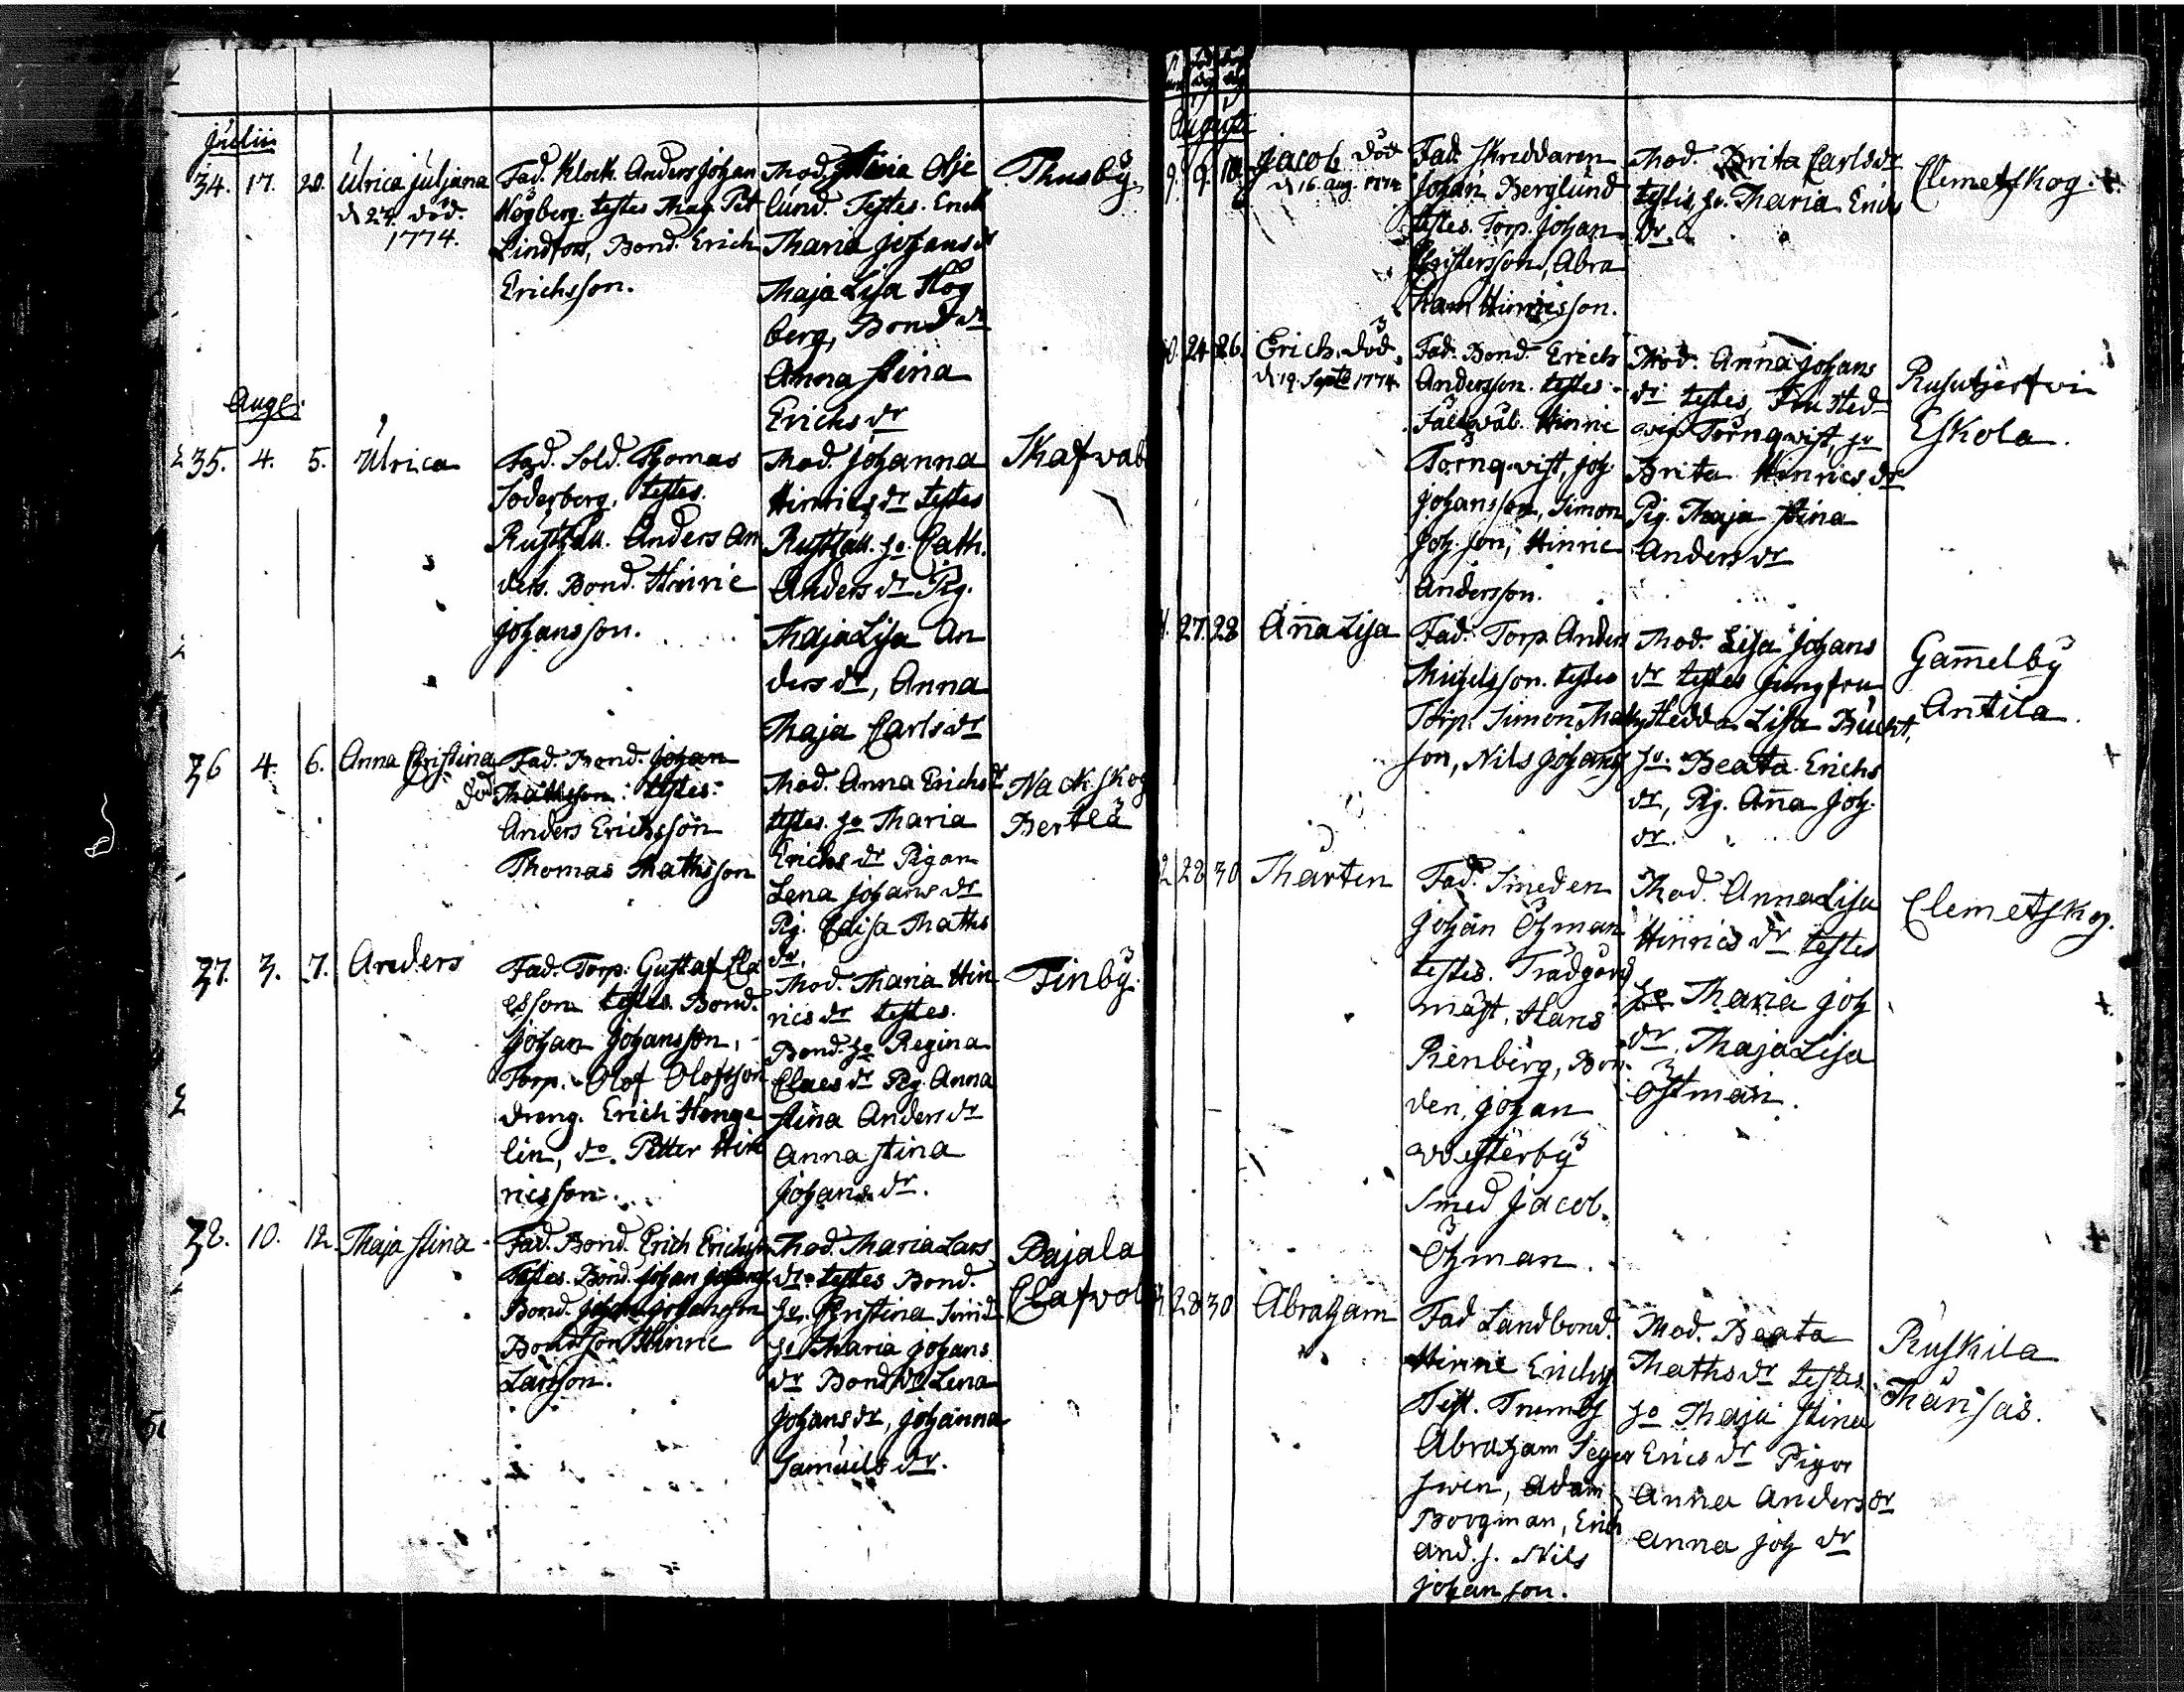 Julii
34. 17. 20. Ulrica Juljana
d 24. död.
1774.
Fad. Klock. Anders Johan
Högberg. testes Mag. Pet
Lindfors, Bond. Erich
Erichsson.
Mod. Maria Asje
lund. Testes. Erich
Maria Johans dr
Maja Lisa Hög
berg, Bond dr
Anna Stina
Erichs dr
Thusby.
Aug.
35. 4. 5. Ulrica
Fad. Sold. Thomas
Söderberg, testes.
Rusthåll. Anders An
ders. Bond. Hinric
Johansson.
Mod. Johanna
Hinrics dr testes
Rusthåll. ho. Cath.
Anders dr Pig.
Maja Lisa An
ders dr, Anna
Maja Carls dr
Skafvab
36 4. 6. Anna Christina
död
Fad. Bond. Johan
Mathsson. testes.
Anders Erichsson
Thomas Mathsson
Mod. Anna Erichs dr
testes. ho Maria
Erichs dr Pigan
Lena Johans dr
Pig. Caisa Maths
dr.
Nackskog
Bertlä
37. 3. 7. Anders
Fad. Torp. Gustaf Cla
esson testes. Bond.
Johan Johansson,
Torp. Olof Olofsson
dreng. Erich Henge
lin, do. Petter Hin
ricsson.
Mod. Maria Hin
rics dr testes.
Bond. ho Regina
Claes dr Pig. Anna
Stina Anders dr
Anna Stina
Johans dr.
Finby.
38. 10. 12. Maja Stina
Fad. Bond. Erich Erichson
Testes. Bond. Johan Johans
Bond. Johan Johansson
Bondson Hinric
Larsson.
Mod. Maria Lars
dr. testes Bond.
ho. Christina Simd
ho Maria Johans
dr Bond dr Lena
Johans dr, Johanna
Samuels dr.
Pajala
Clafvol
Augusti
9. 9. 10. Jacob död
d 16. aug. 1774
Fad. Skreddaren
Johan Berglund
testes. Torp. Johan
Christersson, Abra
ham Hinricsson.
Mod. Brita Carls dr
testis, ho. Maria Erics
dr.
Clemetskog.
0. 24 26. Erich. död
d 19. Septe 1774
Fad. Bond. Erich
Andersson. testes.
Fältwäb. Hinric
Törnqvist, Joh.
Johansson, Simon
Joh. son, Hinric
Andersson.
Mod. Anna Johans
dr testes, Fru Hed
wig Törnqvist, ho
Brita Henrics dr
Pig. Maja Stina
Anders dr
Rusutjerfvi
Eskola.
27. 28 Anna Lisa
Fad. Torp. Anders
Michelsson. testes
Torp. Simon Maths
son, Nils Johans
Mod. Lisa Johans
dr testes Jungfru
Hedda Lisa Bucht,
ho. Beata Erichs
dr, Pig. Anna Joh.
dr.
Gammelby
Antila.
2 28 30 Mårten
Fad. Smeden
Johan Öhman
testes. Trädgård
mäst. Hans
Renberg, Bon
den, Johan
Westerby
Smed Jacob.
Öhman.
Mod. Anna Lisa
Hinrics dr testes
ho Maria Joh
dr. Maja Lisa
Östman.
Clemetskog.
28 30 Abraham
Fad Landbond.
Hinric Erichs
Test. Trumsl
Abraham Seger
sven, Adam
Borgman, Erich
And. s. Nils
Johan son.
Mod. Beata
Maths dr testes
ho Maja Stina
Erics dr Pigor
Anna Anders dr
Anna Joh dr
Ruskila
Mänsas.